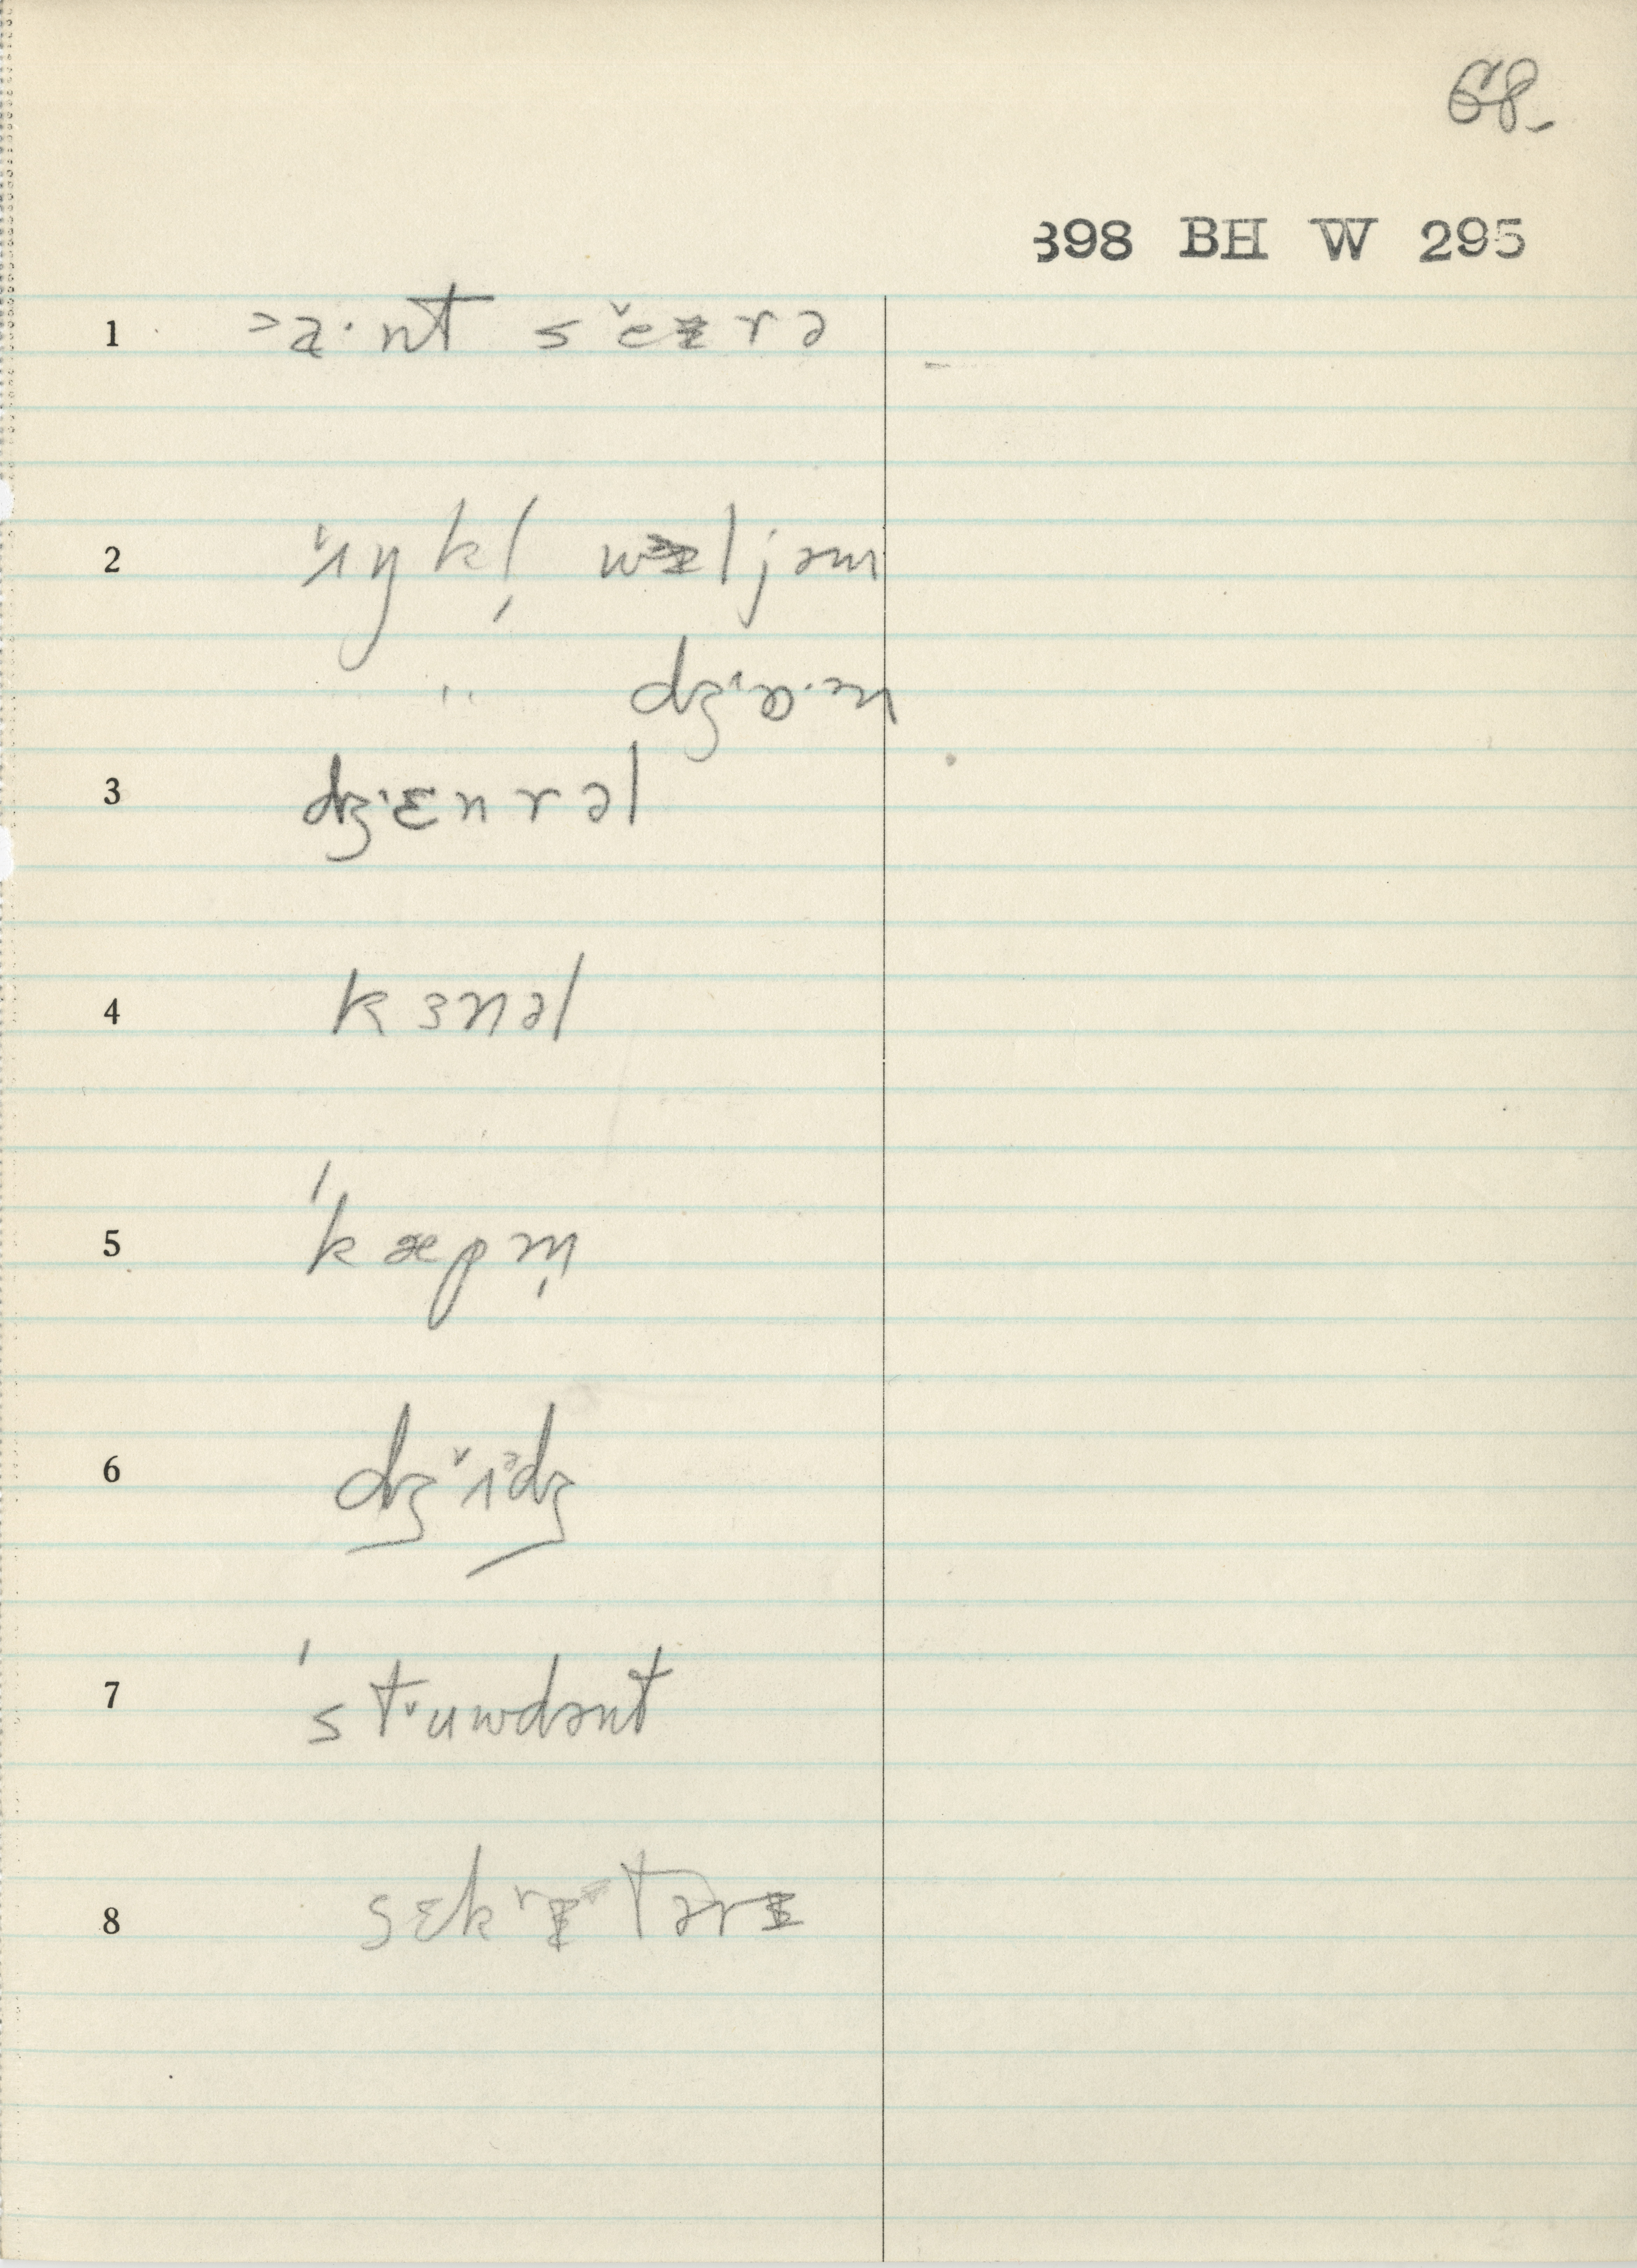 68-
398 BH W 295
1 >a·nt sˇeɪrə
2 ˇʌŋkl̩ wɪljəm
" dʒˈɒ·ən
3 dʒˈɛnrəl
4 kɜnəl
5 ˈkæpm̩
6 dʒˇʌᵊdʒ
7 ˈstˇuwdənt
8 sɛkrɪtərɪ